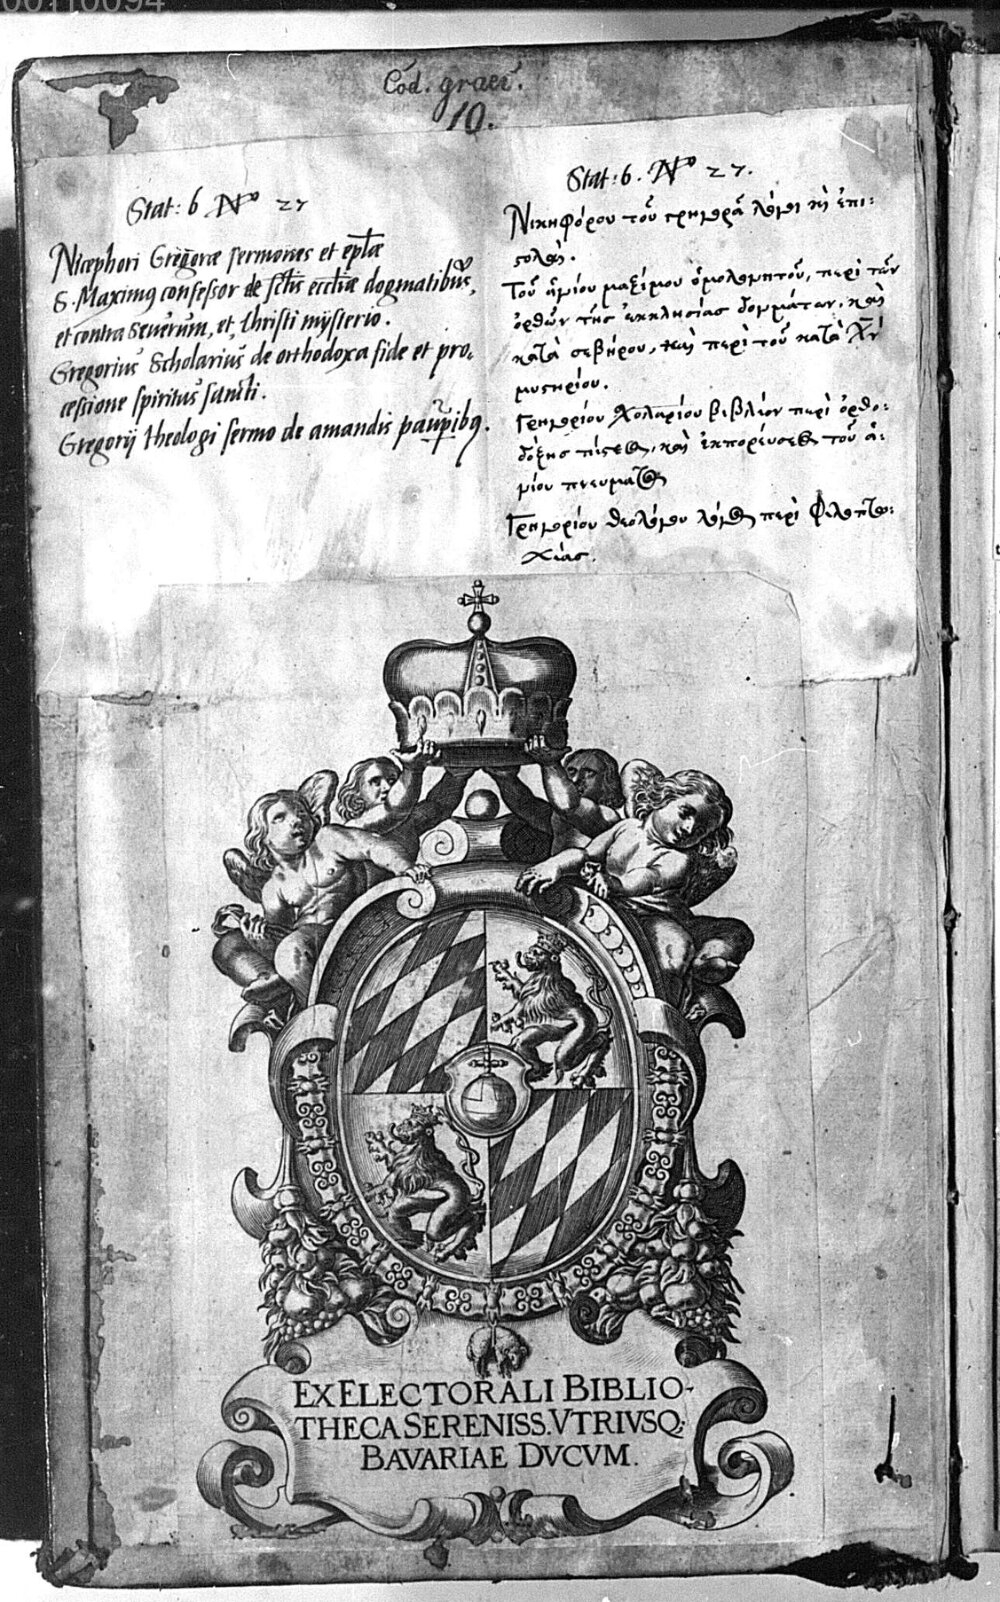 00110094
Cod. graec.
10.
Stat: 6 Nº 27
Nicephori Gregoræ sermones et eplæ
S. Maximꝯ confessor de sctis eccliæ dogmatibus,
et contra Seuerum, et, Christi mysterio.
Gregorius Scholarius de orthodoxa fide et pro,
cessione spiritus sancti.
Gregorij theologi sermo de amandis paupibꝯ.
Stat: 6. Nº 27.
Νικηφόρου τοῦ γρηγορᾶ λόγοι κὶ ἐπι:
ςολαί.
Τοῦ ἁγίου μαξίμου ὁμολογητοῦ, περὶ τῶν
ὀρθῶν τῆς ἐκκλησίας δογμάτων, καὶ
κατὰ σεβήρου, καὶ περὶ τοῦ κατὰ Χν̄
μυςηρίου.
Γρηγορίου Σχολαρίου βιβλίον περὶ ὀρθο:
δόξης πίςεως, καὶ ἐκπορεύσεως τοῦ ἁ:
γίου πνευματος
Γρηγορίου θεολόγου λόγος περὶ Φιλοπτω:
χίας.
EX ELECTORALI BIBLIO-
THECA SERENISS. VTRIVSQ;
BAVARIAE DVCVM.